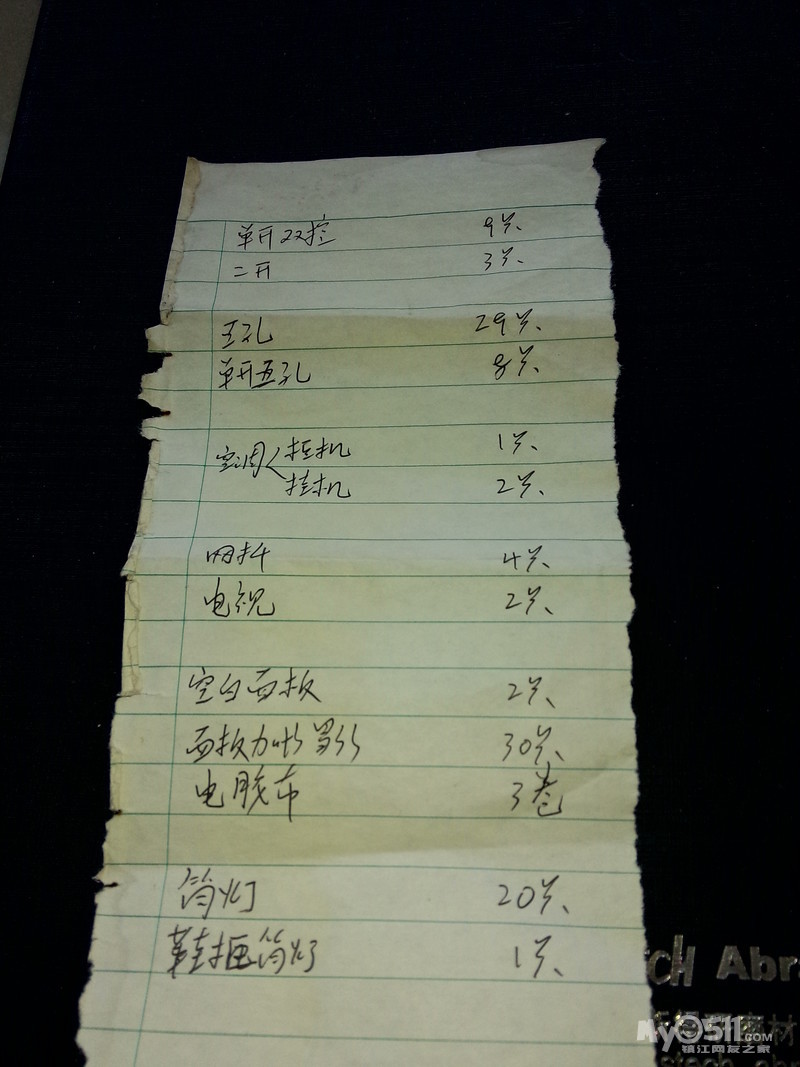 单开双控 9只、
二开 3只、
五孔 29只、
单开五孔 8只、
空调 柜机 1只、
挂机 2只、
网 4只、
电视 2只、
空白面板 2只、
面板加长 30只、
电胶布 3卷
筒灯 20只、
鞋柜筒灯 1只、
CH Abr
My0511.com
镇江网友之家